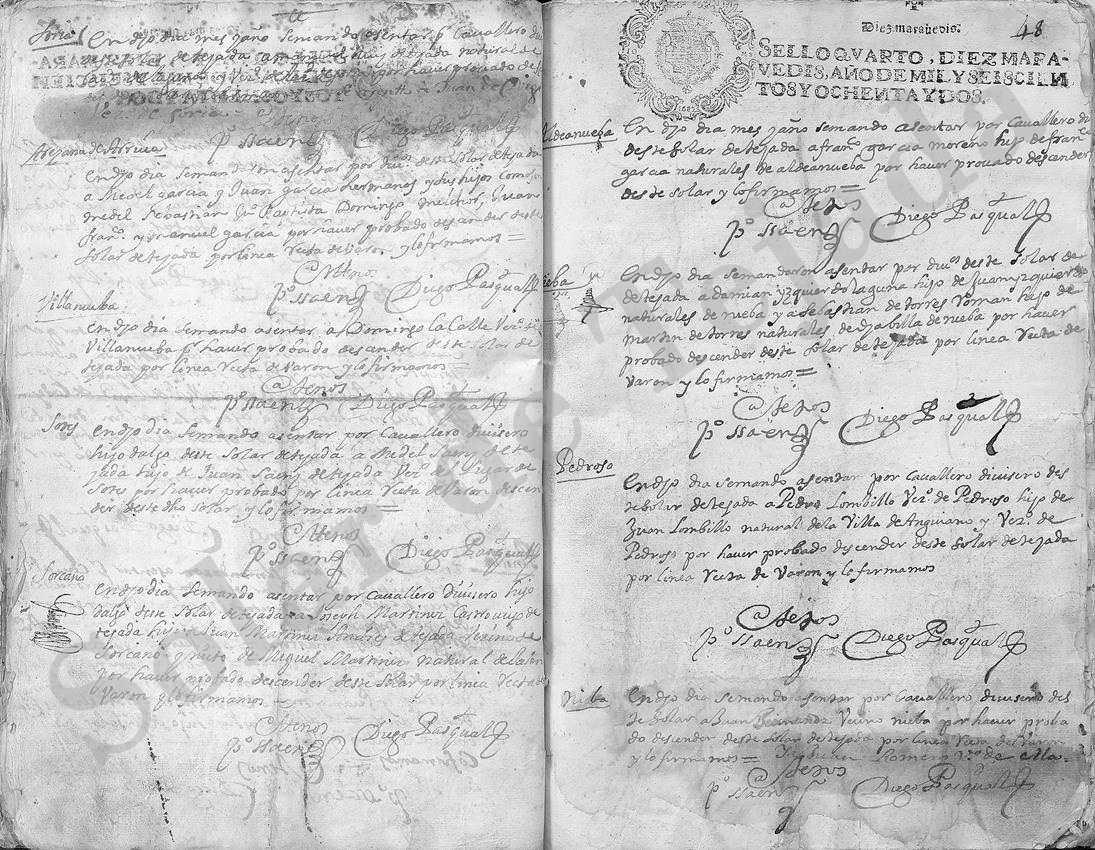 Soria
En dho dia mes y año se mando asentar por Cavallero di
de tejada a Manuel Ruiz de tejada natural de
por haver probado de
Vez. de Soria
Atenos
Po. Saenz Diego Pasqual
Arenzana de Arriva
En dho dia se mandaron asentar por divos. deste Solar de tejada
a Medel garcia y Juan garcia hermanos y sus hijos como son
medel Sebastian Ju. Baptista Domingo melchor, Juan
franco. y manuel garcia por haver probado desendes deste
Solar de tejada por linea Recta de Varon y lo firmamos =
Atenos
Po. Saenz Diego Pasqual
Villanueba
En dho dia Semando asentar a Domingo la Calle Vezo. de
Villanueba por haver probado descender deste solar de
tejada por linea Recta de Varon y lo firmamos =
Atenos
Po. Saenz Diego Pasqual
Sotes
En dho dia Semando asentar por Cavallero divisero
hijo dalgo deste Solar de tejada a Medel Saenz de te
jada hijo de Juan Saenz de tejada Vezo. del Lugar de
Sotes por haver probado por linea Recta de Varon descen
der deste dho solar y lo firmamos =
Atenos
Po. Saenz Diego Pasqual
Sorcano
En dho dia Semando asentar por Cavallero divisero hijo
dalgo deste Solar de tejada a Joseph Martinez Castroviejo de
tejada hijo de Juan Martinez Andres de tejada Vezino de
Sorcano y nieto de Miguel Martinez natural de
por haver probado descender deste Solar por linea Recta de
Varon y lo firmamos =
Atenos
Po. Saenz Diego Pasqual
Diez maravedis.
48
SELLO QVARTO, DIEZ MARA-
VEDIS, AÑO DE MIL Y SEISCIEN
TOS Y OCHENTA Y DOS.
Aldeanueba
En dho dia mes y año semando asentar por Cavallero di
deste Solar de tejada a franco. garcia moreno hijo de franco.
garcia naturales de aldeanueba por haver provado descender
deste solar y lo firmamos =
Atenos
Po. Saenz Diego Pasqual
Nieba
En dho dia semandaron asentar por divos. deste Solar de
tejada a Damian yzquierdo laguna hijo de Juan yzquierdo
naturales de nieba y a Sebastian de torres Roman hijo de
martin de torres naturales de de nieba por haver
probado descender deste Solar de tejada por linea Recta de
Varon y lo firmamos =
Atenos
Po. Saenz Diego Pasqual
Pedroso
En dho dia semando asentar por Cavallero divisero des
te Solar de tejada a Pedro Lombillo Vezo. de Pedroso hijo de
Juan Lombillo natural de la Villa de Anguiano y Vezo. de
Pedroso por haver probado descender deste Solar de tejada
por linea Recta de Varon y lo firmamos
Atenos
Po. Saenz Diego Pasqual
Nieba
En dho dia semando asentar por Cavallero divisero des
te Solar a Juan Hernandez Vezino nieba por haver proba
do descender deste Solar de tejada por linea Recta de Varon
y lo firmamos = Juan Romero Vo. de ella.
Atenos
Po. Saenz Diego Pasqual